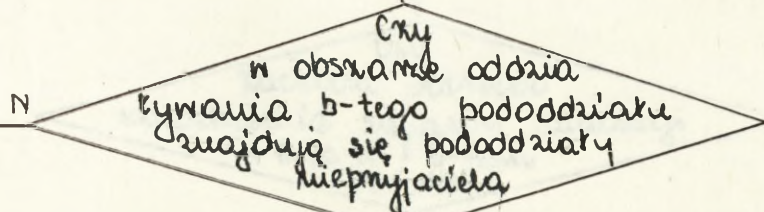 Czy
w obszarze oddzia
ływania b-tego pododdziału
N
znajdują się pododdziały
nieprzyjaciela